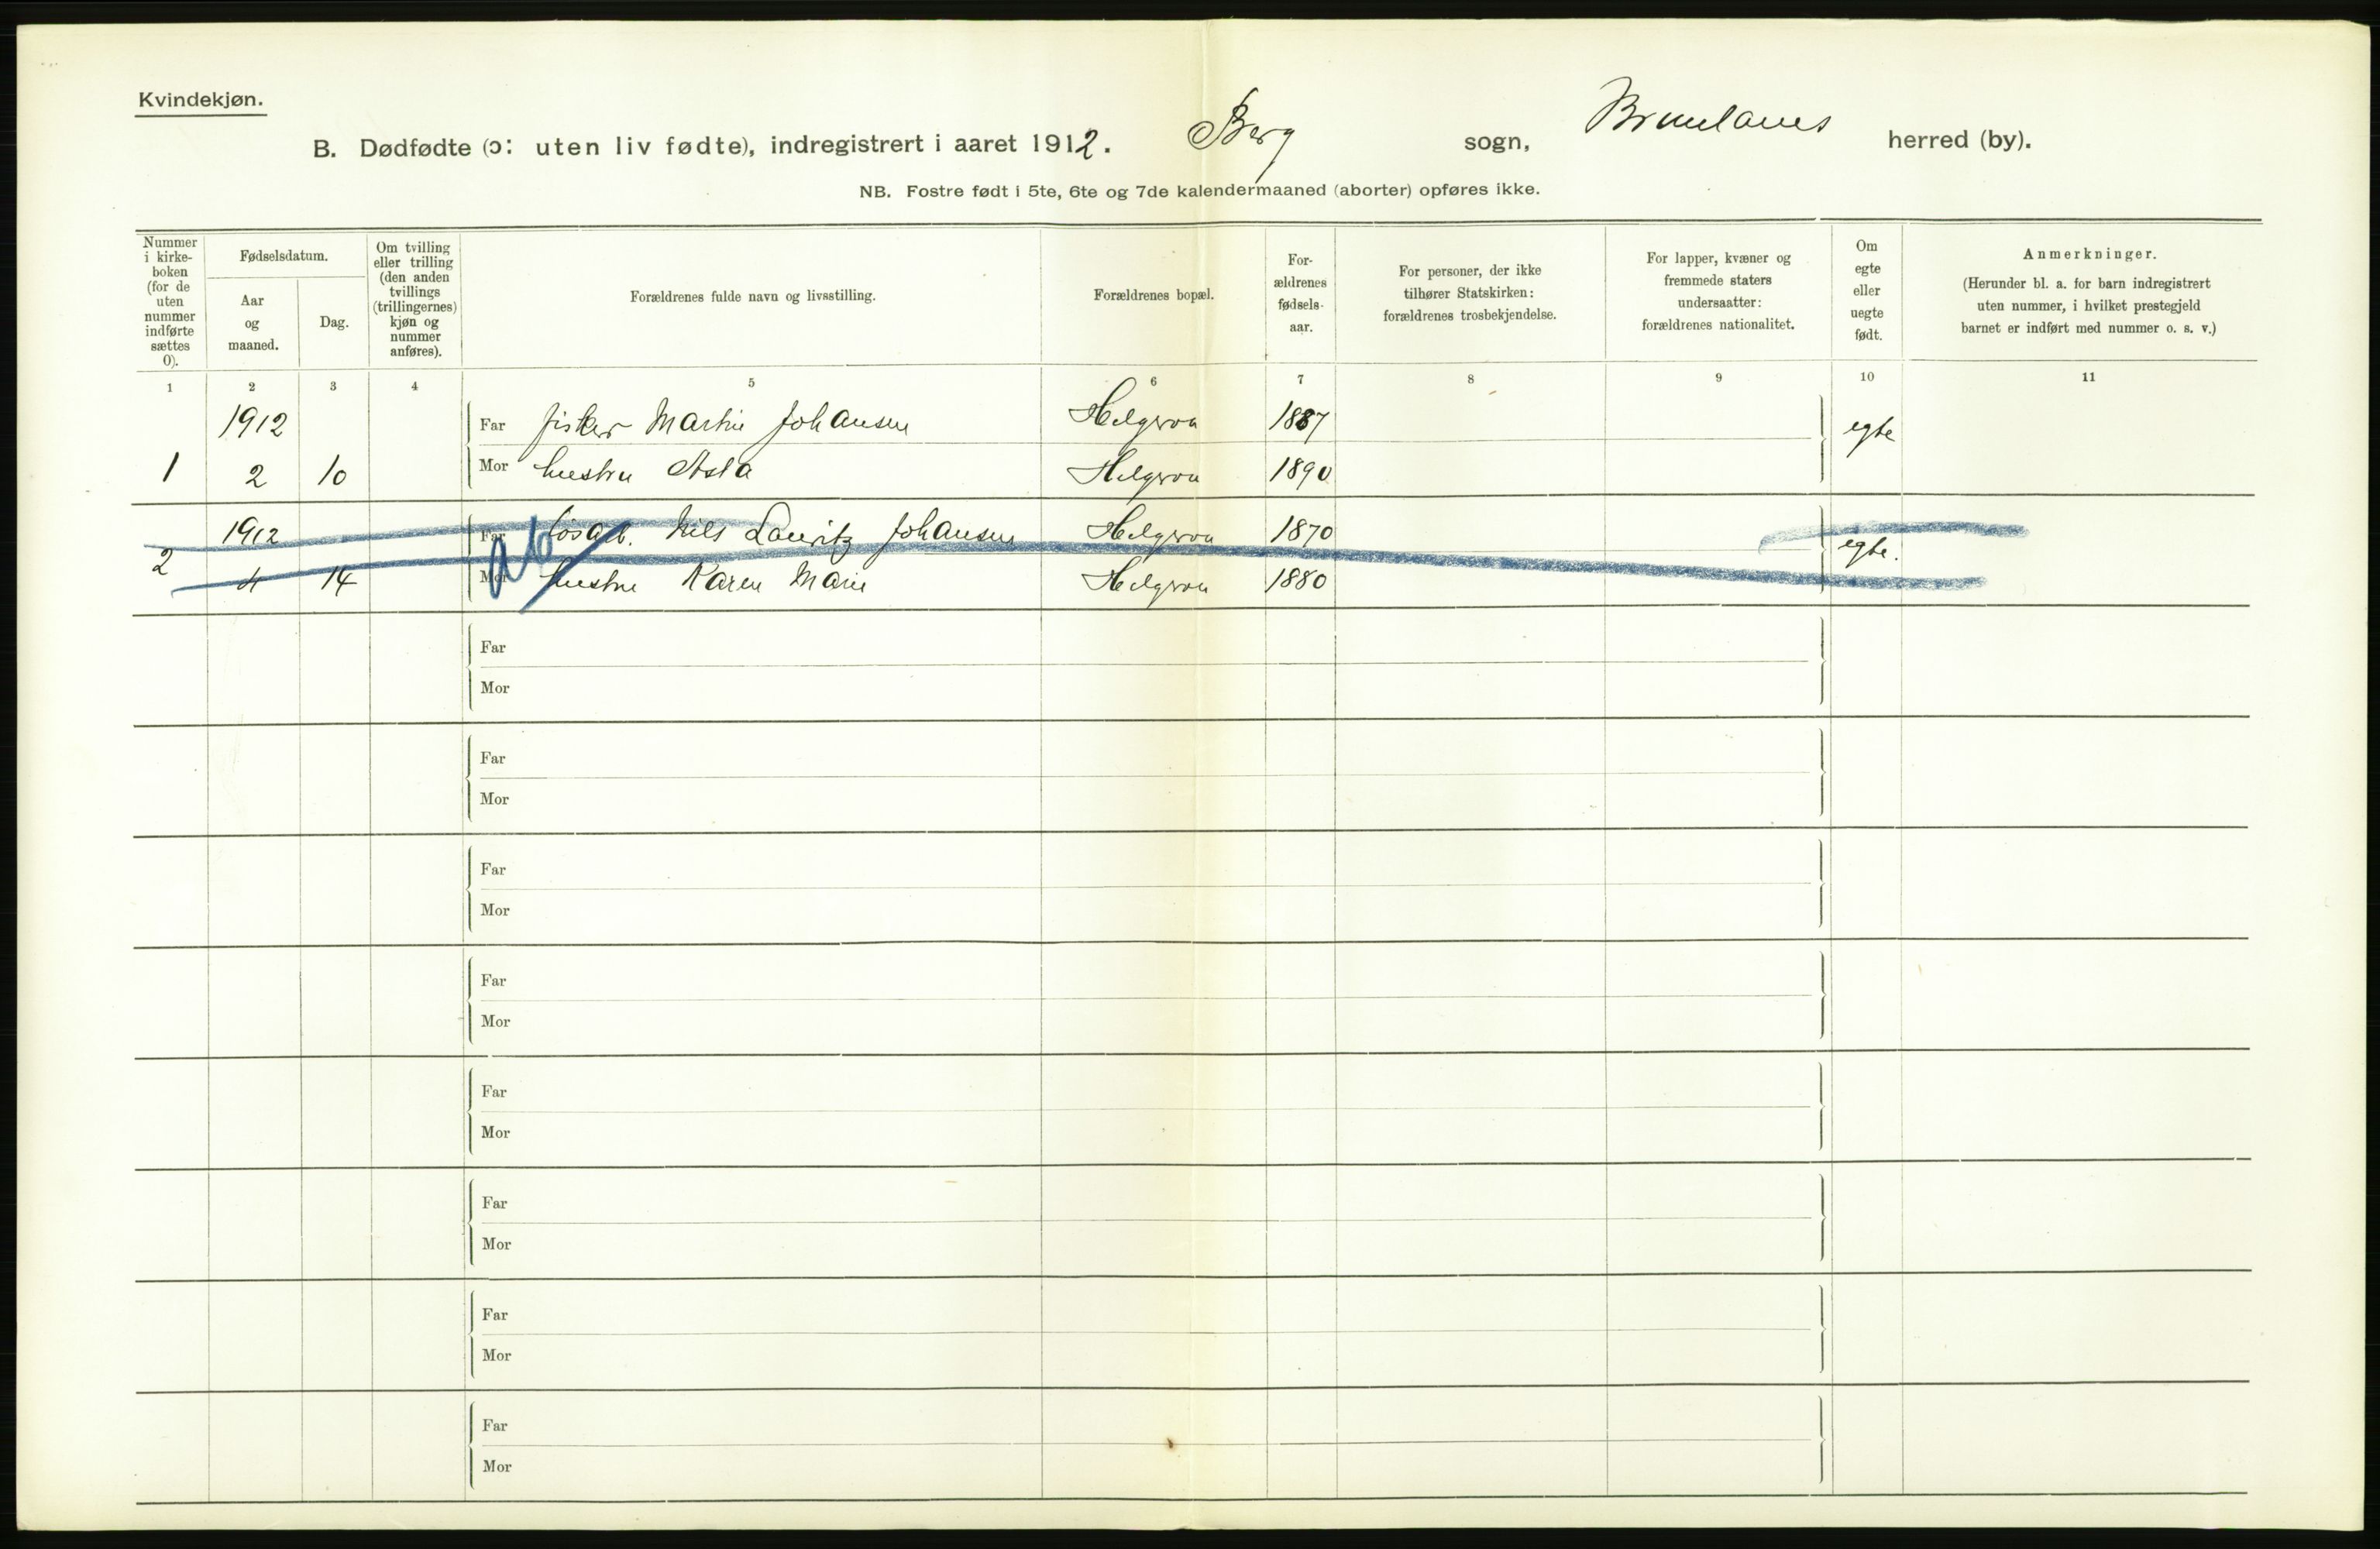 Kvindekjøn.
B. Dødfødte (ɔ: uten liv fødte), indregistrert i aaret 1912. Berg sogn, Brunlanes herred (by).
NB. Fostre født i 5te, 6te og 7de kalendermaaned (aborter) opføres ikke.
Nummer i kirke-boken (for de uten nummer indførte sættes 0).
Fødselsdatum.
Aar og maaned.
Dag.
Om tvilling eller trilling (den anden tvillings (trillingernes) kjøn og nummer anføres).
Forældrenes fulde navn og livsstilling.
Forældrenes bopæl.
For-ældrenes fødsels-aar.
For personer, der ikke tilhører Statskirken: forældrenes trosbekjendelse.
For lapper, kvæner og fremmede staters undersaatter: forældrenes nationalitet.
Om egte eller uegte født.
Anmerkninger.
(Herunder bl. a. for barn indregistrert uten nummer, i hvilket prestegjeld barnet er indført med nummer o. s. v.)
1 2 3 4 5 6 7 8 9 10 11
1912 Far fisker Martin Johansen Helgeroa 1887 egte
1 2 10 Mor hustru Asla Helgeroa 1890
1912 Far løsarb. Nils Lauritz Johansen Helgeroa 1870 egte.
2 4 14 Mor hustru Karen Marie Helgeroa 1880
ab
Far
Mor
Far
Mor
Far
Mor
Far
Mor
Far
Mor
Far
Mor
Far
Mor
Far
Mor